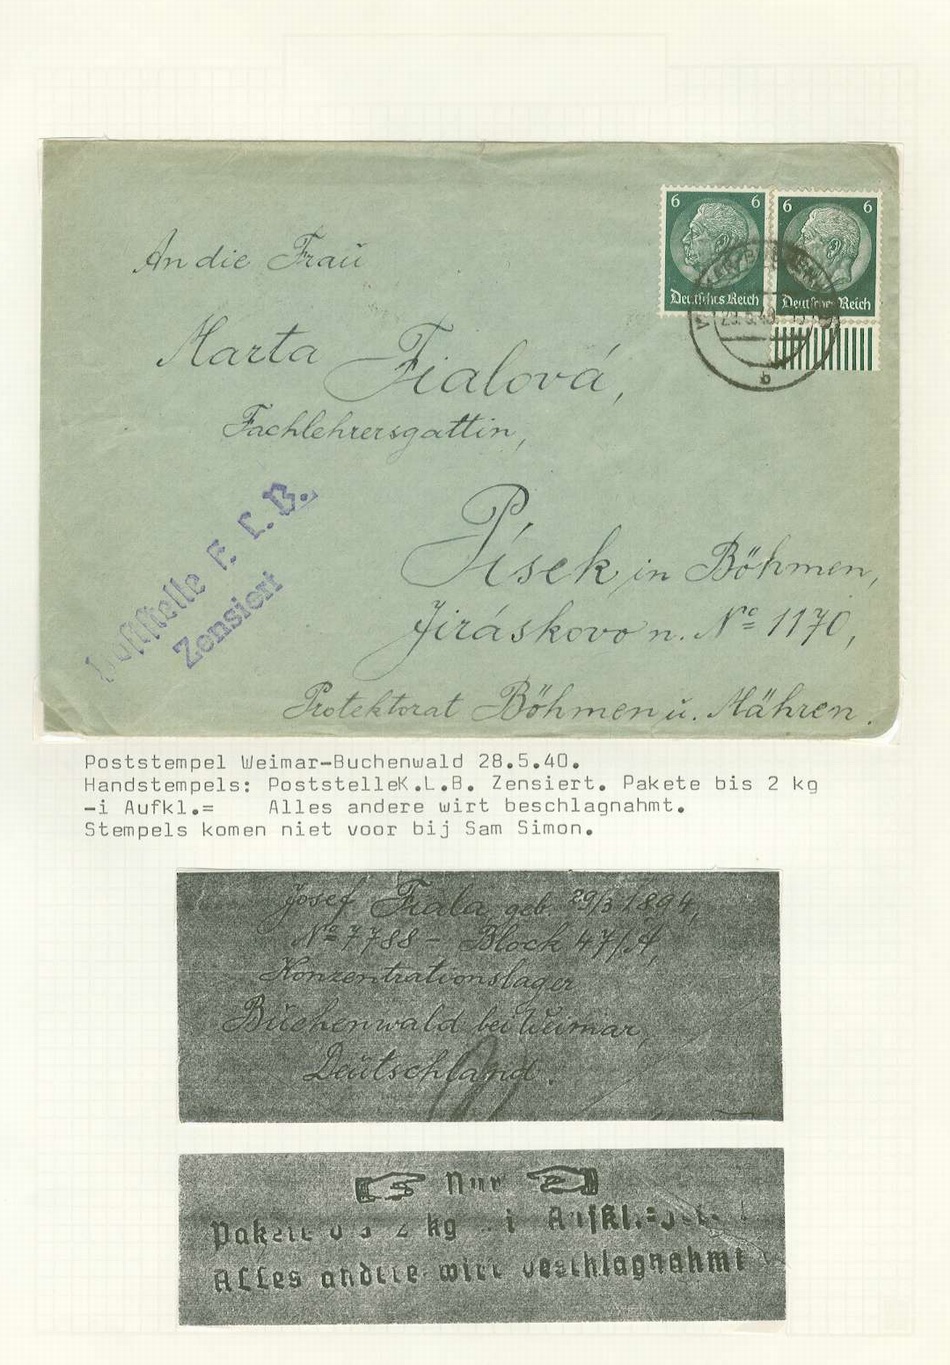 An die Frau
Marta Fialová,
Fachlehrersgattin,
Písek in Böhmen,
Jiráskovo n. № 1170,
Protektorat Böhmen u. Mähren.
6 6
Deutsches Reich
6 6
Deutsches Reich
b
Poststelle K. L. B.
Zensiert
Poststempel Weimar-Buchenwald 28.5.40.
Handstempels: PoststelleK.L.B. Zensiert. Pakete bis 2 kg
-i Aufkl.= Alles andere wirt beschlagnahmt.
Stempels komen niet voor bij Sam Simon.
Josef Fiala, geb. 29/3 1894,
№ 7788 - Block 47/A,
Konzentrationslager
Buchenwald bei Weimar,
Deutschland.
Nur
Pakete 2 kg i Aufkl.=
Alles andere wirt beschlagnahmt